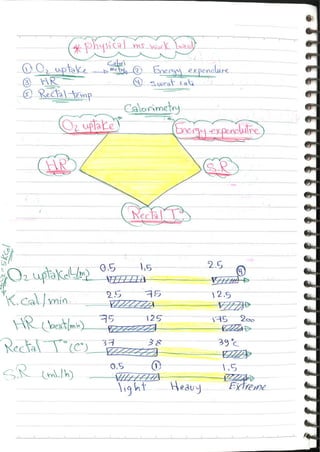 * physical ms. work load
① O₂ uptake → Calori metry ② Energy expendure
③ HR ④ Sweat rate
⑤ Rectal temp
Calorimetry
O₂ uptake Energy expendutre
HR S.R
Rectal T°
O₂ uptake (L/m) 0.5 1.5 2.5 ④
K.cal/min 2.5 7.5 12.5
HR (beat/min) 75 125 175 200
Rectal T° (C°) 37 38 39°c
S.R (ml/h) 0.5 ① 1.5
light Heavy Extreme